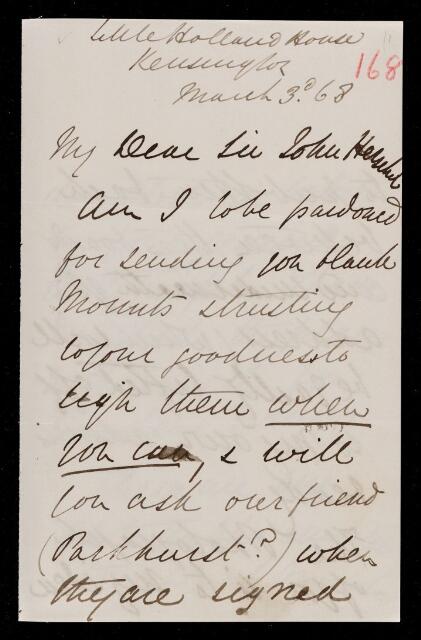 Little Holland House
Kensington
168
March 3d 68
My Dear Sir John Herschel
Am I to be pardoned
for sending you blank
Mounts & trusting
to your goodness to
sign them when
you can, & will
you ask our friend
(Parkhurst?) when
they are signed